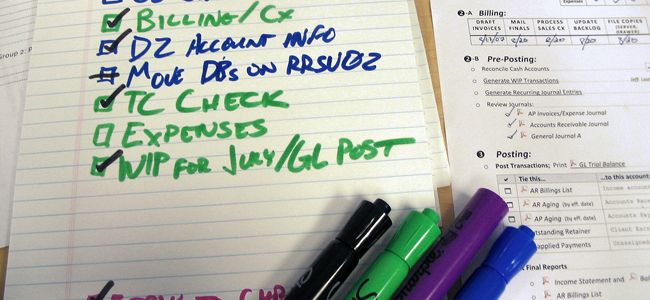 BILLING/CX
DZ ACCOUNT INFO
MOVE DBS ON RRSUB2
TC CHECK
EXPENSES
WIP FOR JULY/GL POST
Group 2:
Expenses
2-A Billing:
DRAFT INVOICES MAIL FINALS PROCESS SALES CX UPDATE BACKLOG FILE COPIES (SERVER, DRAWER)
8/20 8/20 8/20 8/20
2-B Pre-Posting:
Reconcile Cash Accounts
Generate WIP Transactions
Generate Recurring Journal Entries
Review Journals:
AP Invoices/Expense Journal
Accounts Receivable Journal
General Journal A
3 Posting:
Post Transactions; Print GL Trial Balance
Tie this... ...to this accou
AR Billings List Income account
AR Aging (by eff. date) Accounts Rece
AP Aging (by eff. date) Accounts Paya
utstanding Retainer Client
applied Payments Unassigned
Final Reports
Income Statement and Bala
AR Billings List